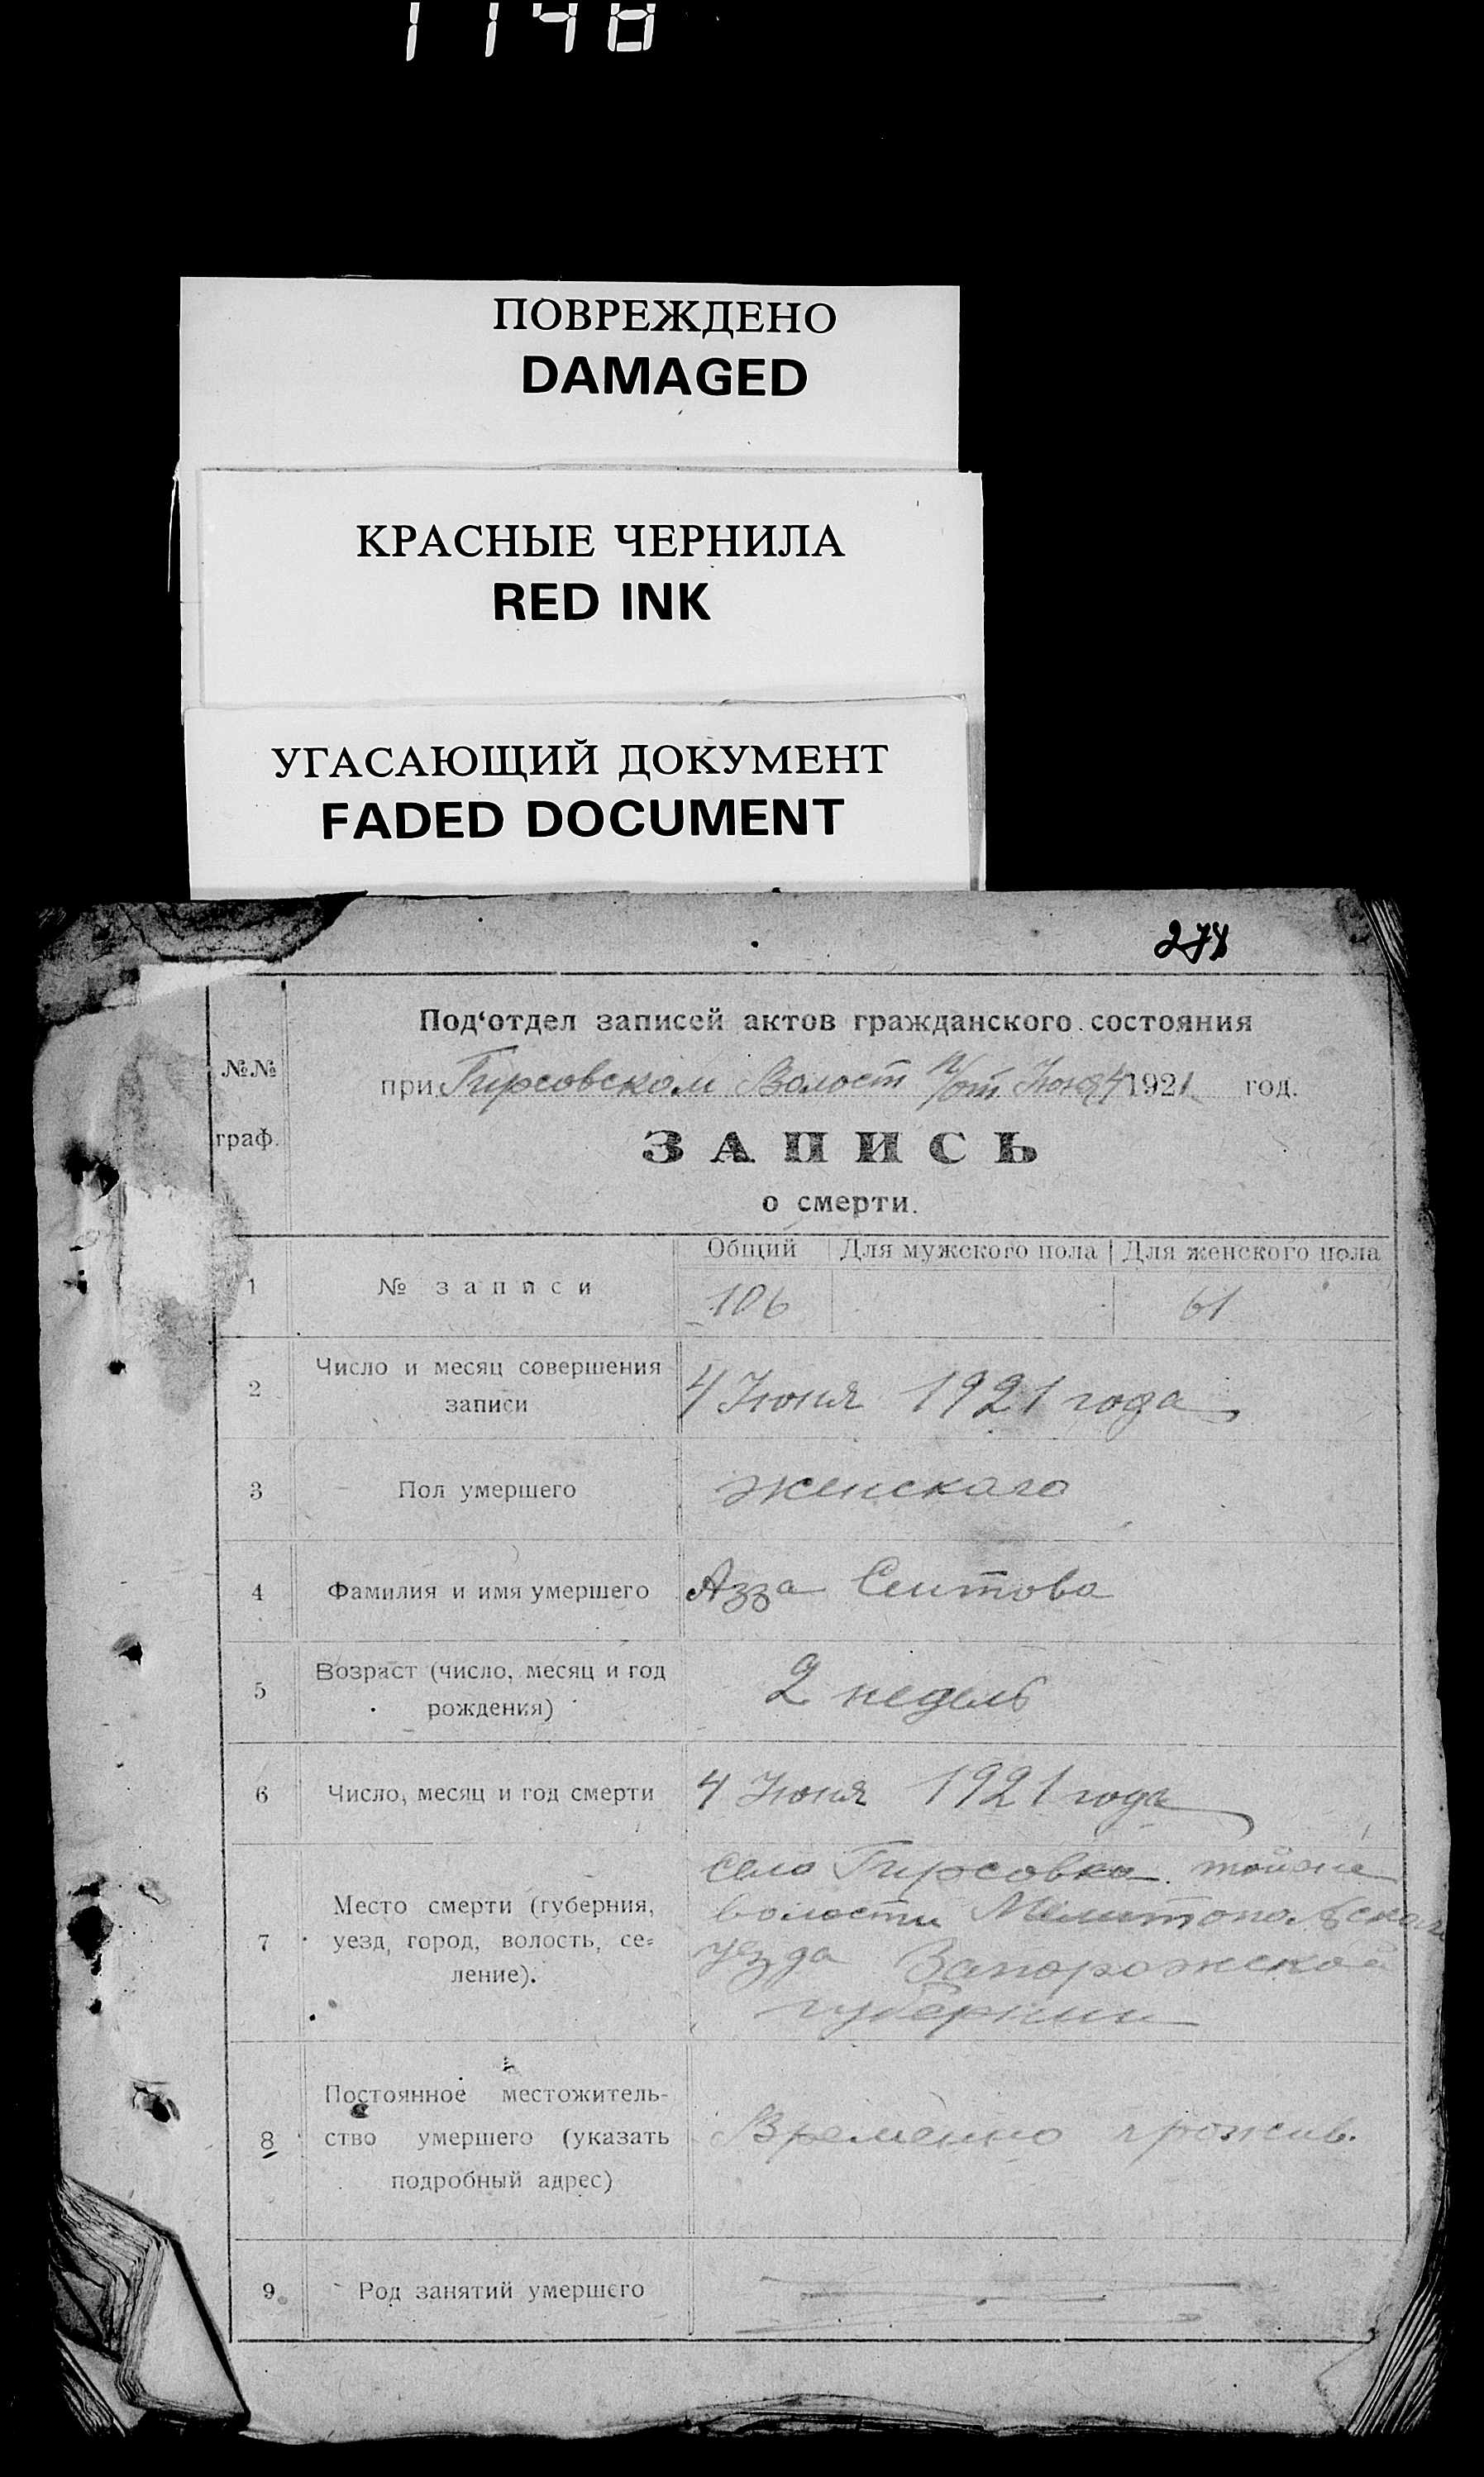 1148
ПОВРЕЖДЕНО
DAMAGED
КРАСНЫЕ ЧЕРНИЛА
RED INK
УГАСАЮЩИЙ ДОКУМЕНТ
FADED DOCUMENT
278
№№
граф.
Под‘отдел записей актов гражданского состояния
при Гирсовском Волост п/от. Июня 4 1921 год.
ЗАПИСЬ
о смерти.
Общий Для мужского пола Для женского пола
1 № записи 106 61
2 Число и месяц совершения
записи
4 Июня 1921 года
3 Пол умершего женскаго
4 Фамилия и имя умершего Азза Сеитова
5 Возраст (число, месяц и год
рождения)
2 недель
6 Число, месяц и год смерти 4 Июня 1921 года
7 Место смерти (губерния,
уезд, город, волость, се-
ление).
село Гирсовка тойже
волости Мелитопольскаго
уезда Запорожской
губернии
8 Постоянное местожитель-
ство умершего (указать
подробный адрес)
Временно прожив.
9 Род занятий умершего